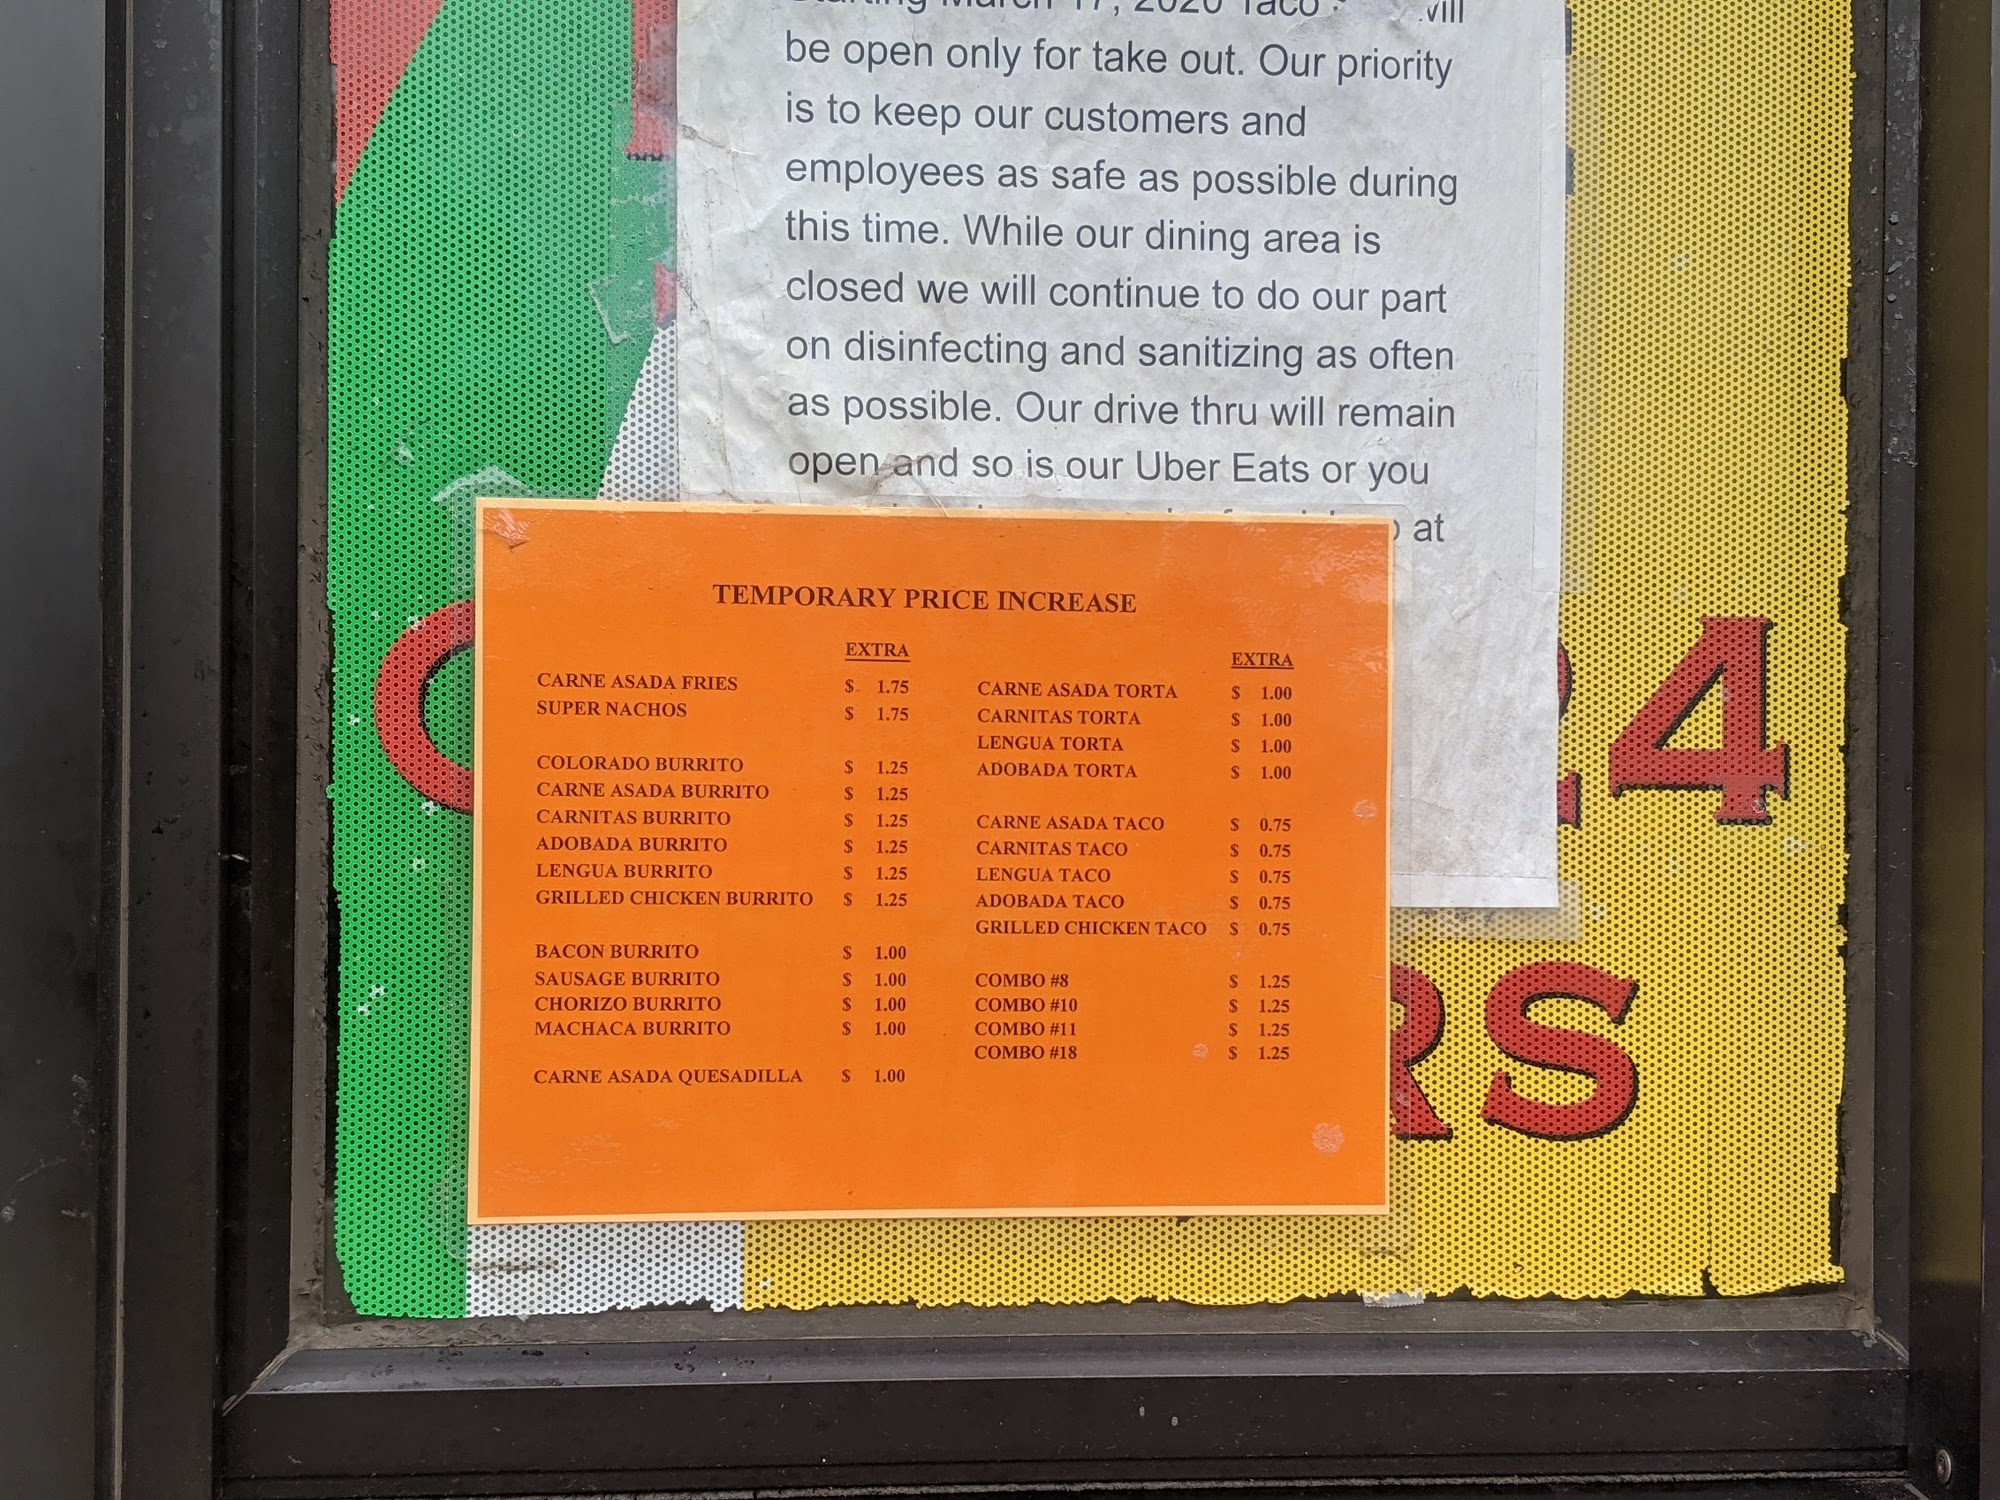 Starting March 17, 2020 Taco will
be open only for take out. Our priority
is to keep our customers and
employees as safe as possible during
this time. While our dining area is
closed we will continue to do our part
on disinfecting and sanitizing as often
as possible. Our drive thru will remain
open and so is our Uber Eats or you
at
TEMPORARY PRICE INCREASE
EXTRA
CARNE ASADA FRIES $ 1.75
SUPER NACHOS $ 1.75
COLORADO BURRITO $ 1.25
CARNE ASADA BURRITO $ 1.25
CARNITAS BURRITO $ 1.25
ADOBADA BURRITO $ 1.25
LENGUA BURRITO $ 1.25
GRILLED CHICKEN BURRITO $ 1.25
BACON BURRITO $ 1.00
SAUSAGE BURRITO $ 1.00
CHORIZO BURRITO $ 1.00
MACHACA BURRITO $ 1.00
CARNE ASADA QUESADILLA $ 1.00
EXTRA
CARNE ASADA TORTA $ 1.00
CARNITAS TORTA $ 1.00
LENGUA TORTA $ 1.00
ADOBADA TORTA $ 1.00
CARNE ASADA TACO $ 0.75
CARNITAS TACO $ 0.75
LENGUA TACO $ 0.75
ADOBADA TACO $ 0.75
GRILLED CHICKEN TACO $ 0.75
COMBO #8 $ 1.25
COMBO #10 $ 1.25
COMBO #11 $ 1.25
COMBO #18 $ 1.25
24
RS